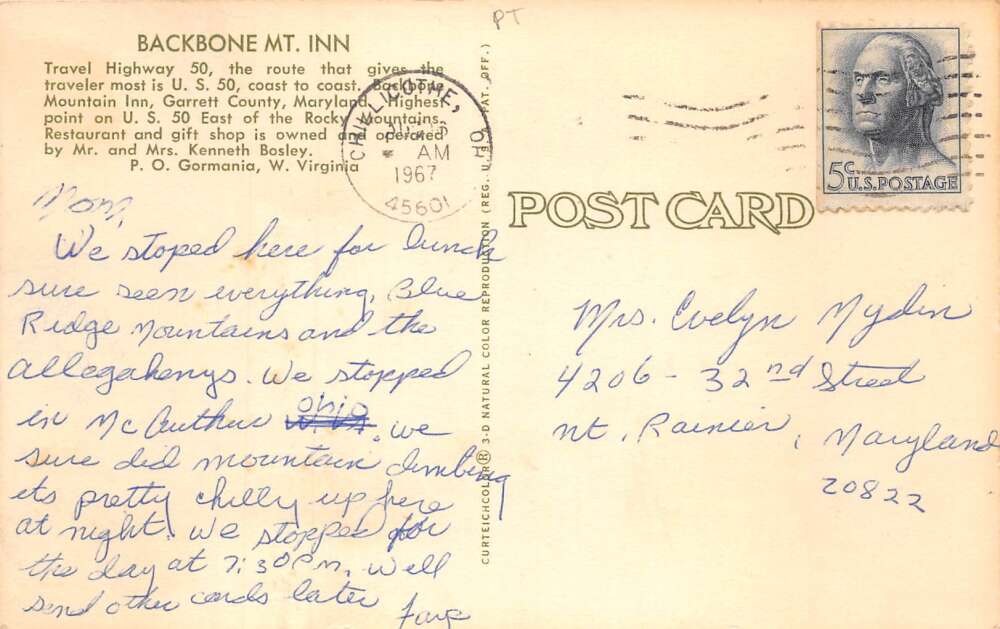 PT
BACKBONE MT. INN
Travel Highway 50, the route that gives the
traveler most is U. S. 50, coast to coast. Backbone
Mountain Inn, Garrett County, Maryland. Highest
point on U. S. 50 East of the Rocky Mountains.
Restaurant and gift shop is owned and operated
by Mr. and Mrs. Kenneth Bosley.
P. O. Gormania, W. Virginia
CHILLICOTHE, OH
AM
1967
45601
5c U.S. POSTAGE
POST CARD
CURTEICHCOLOR® 3-D NATURAL COLOR REPRODUCTION (REG. U.S.A. PAT. OFF.)
Mom,
We stoped here for lunch
sure seen everything, Blue
Ridge Mountains and the
allegahenys. We stopped
in McArthur Ohio. we
sure did mountain climbing
its pretty chilly up here
at night. We stopped for
the day at 7:30 P.m, well
send other cards later
Faye
Mrs. Evelyn Nydin
4206 - 32nd Street
Mt. Rainier, Maryland
20822